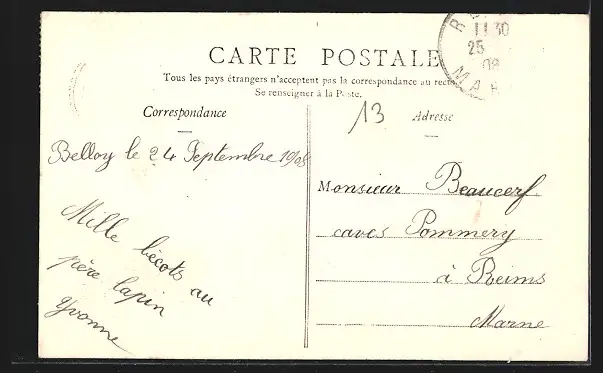 CARTE POSTALE
Tous les pays étrangers n'acceptent pas la correspondance au recto
Se renseigner à la Poste.
Correspondance
Adresse
13
11 30
25
08
MAR
Belloy le 24 Septembre 1908
Mille bécots au
père lapin
Yvonne
Monsieur Beaucerf
caves Pommery
à Reims
Marne